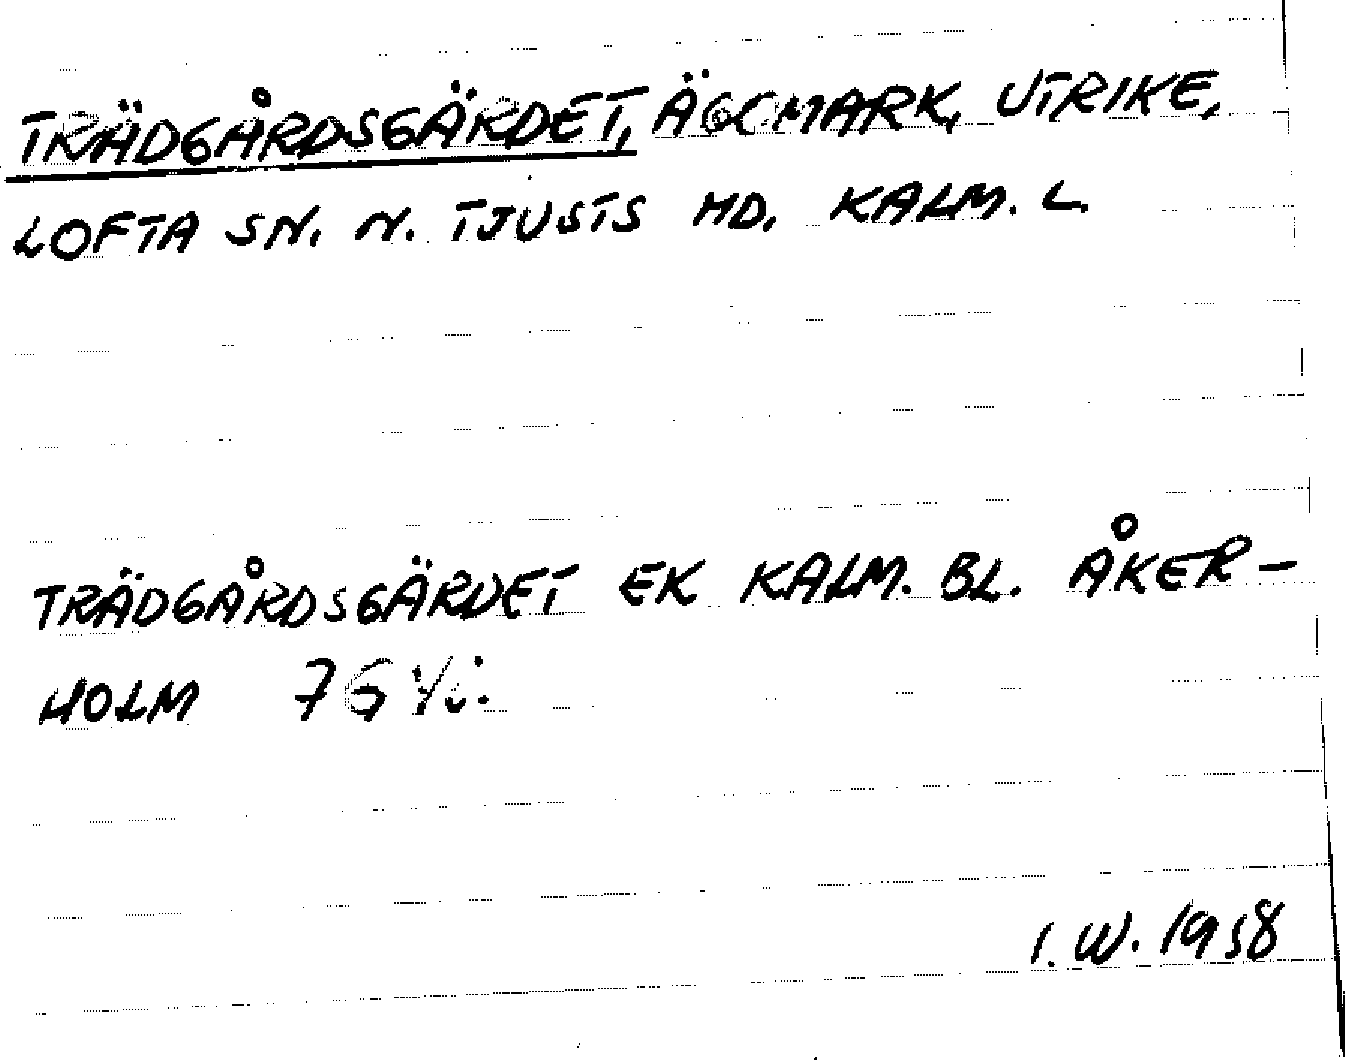 TRÄDGÅRDSGÄRDET, ÄGOMARK, UTRIKE,
LOFTA SN. N. TJUSTS HD. KALM. L.
TRÄDGÅRDSGÄRDET EK KALM. BL. ÅKER-
HOLM
I. W. 1958